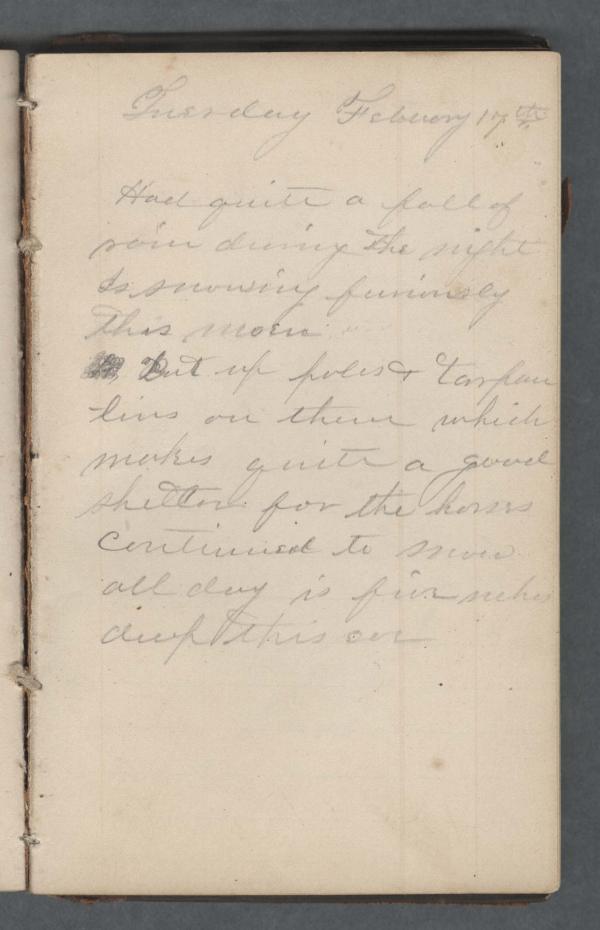 Tuesday Febuary 17th
Had quite a fall of
rain during the night
Is snowing furiously
this morn
Put up poles & tarpau
lins on them which
makes quite a good
shelter for the horses
Continued to snow
all day is five inches
deep this eve